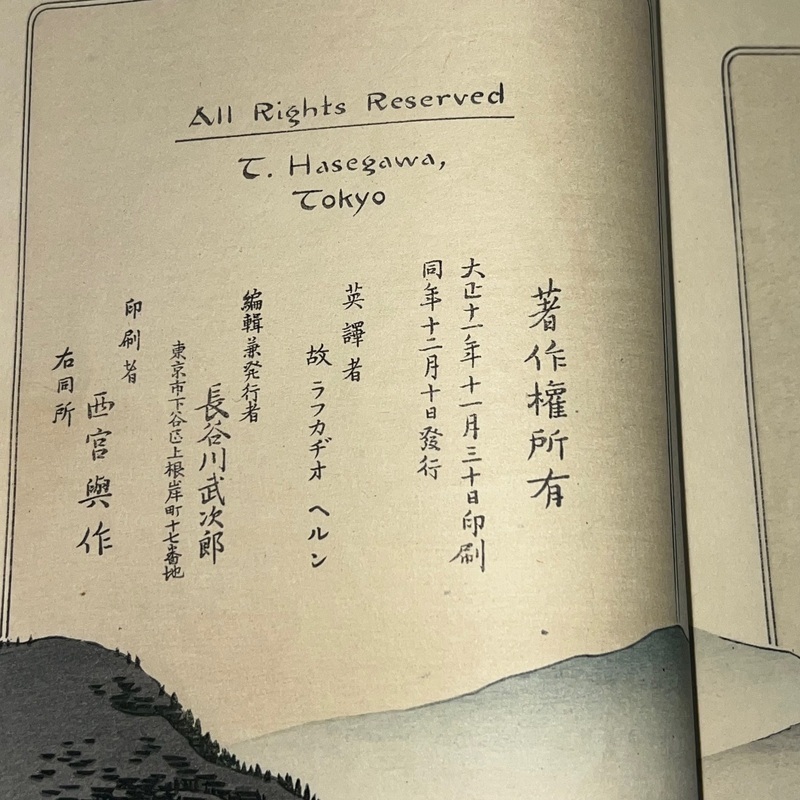 All Rights Reserved
T. Hasegawa,
Tokyo
著作權所有
大正十一年十一月三十日印刷
同年十二月十日發行
英譯者
故 ラフカヂオ ヘルン
編輯兼発行者
長谷川武次郎
東京市下谷區上根岸町十七番地
印刷者
西宮與作
右同所